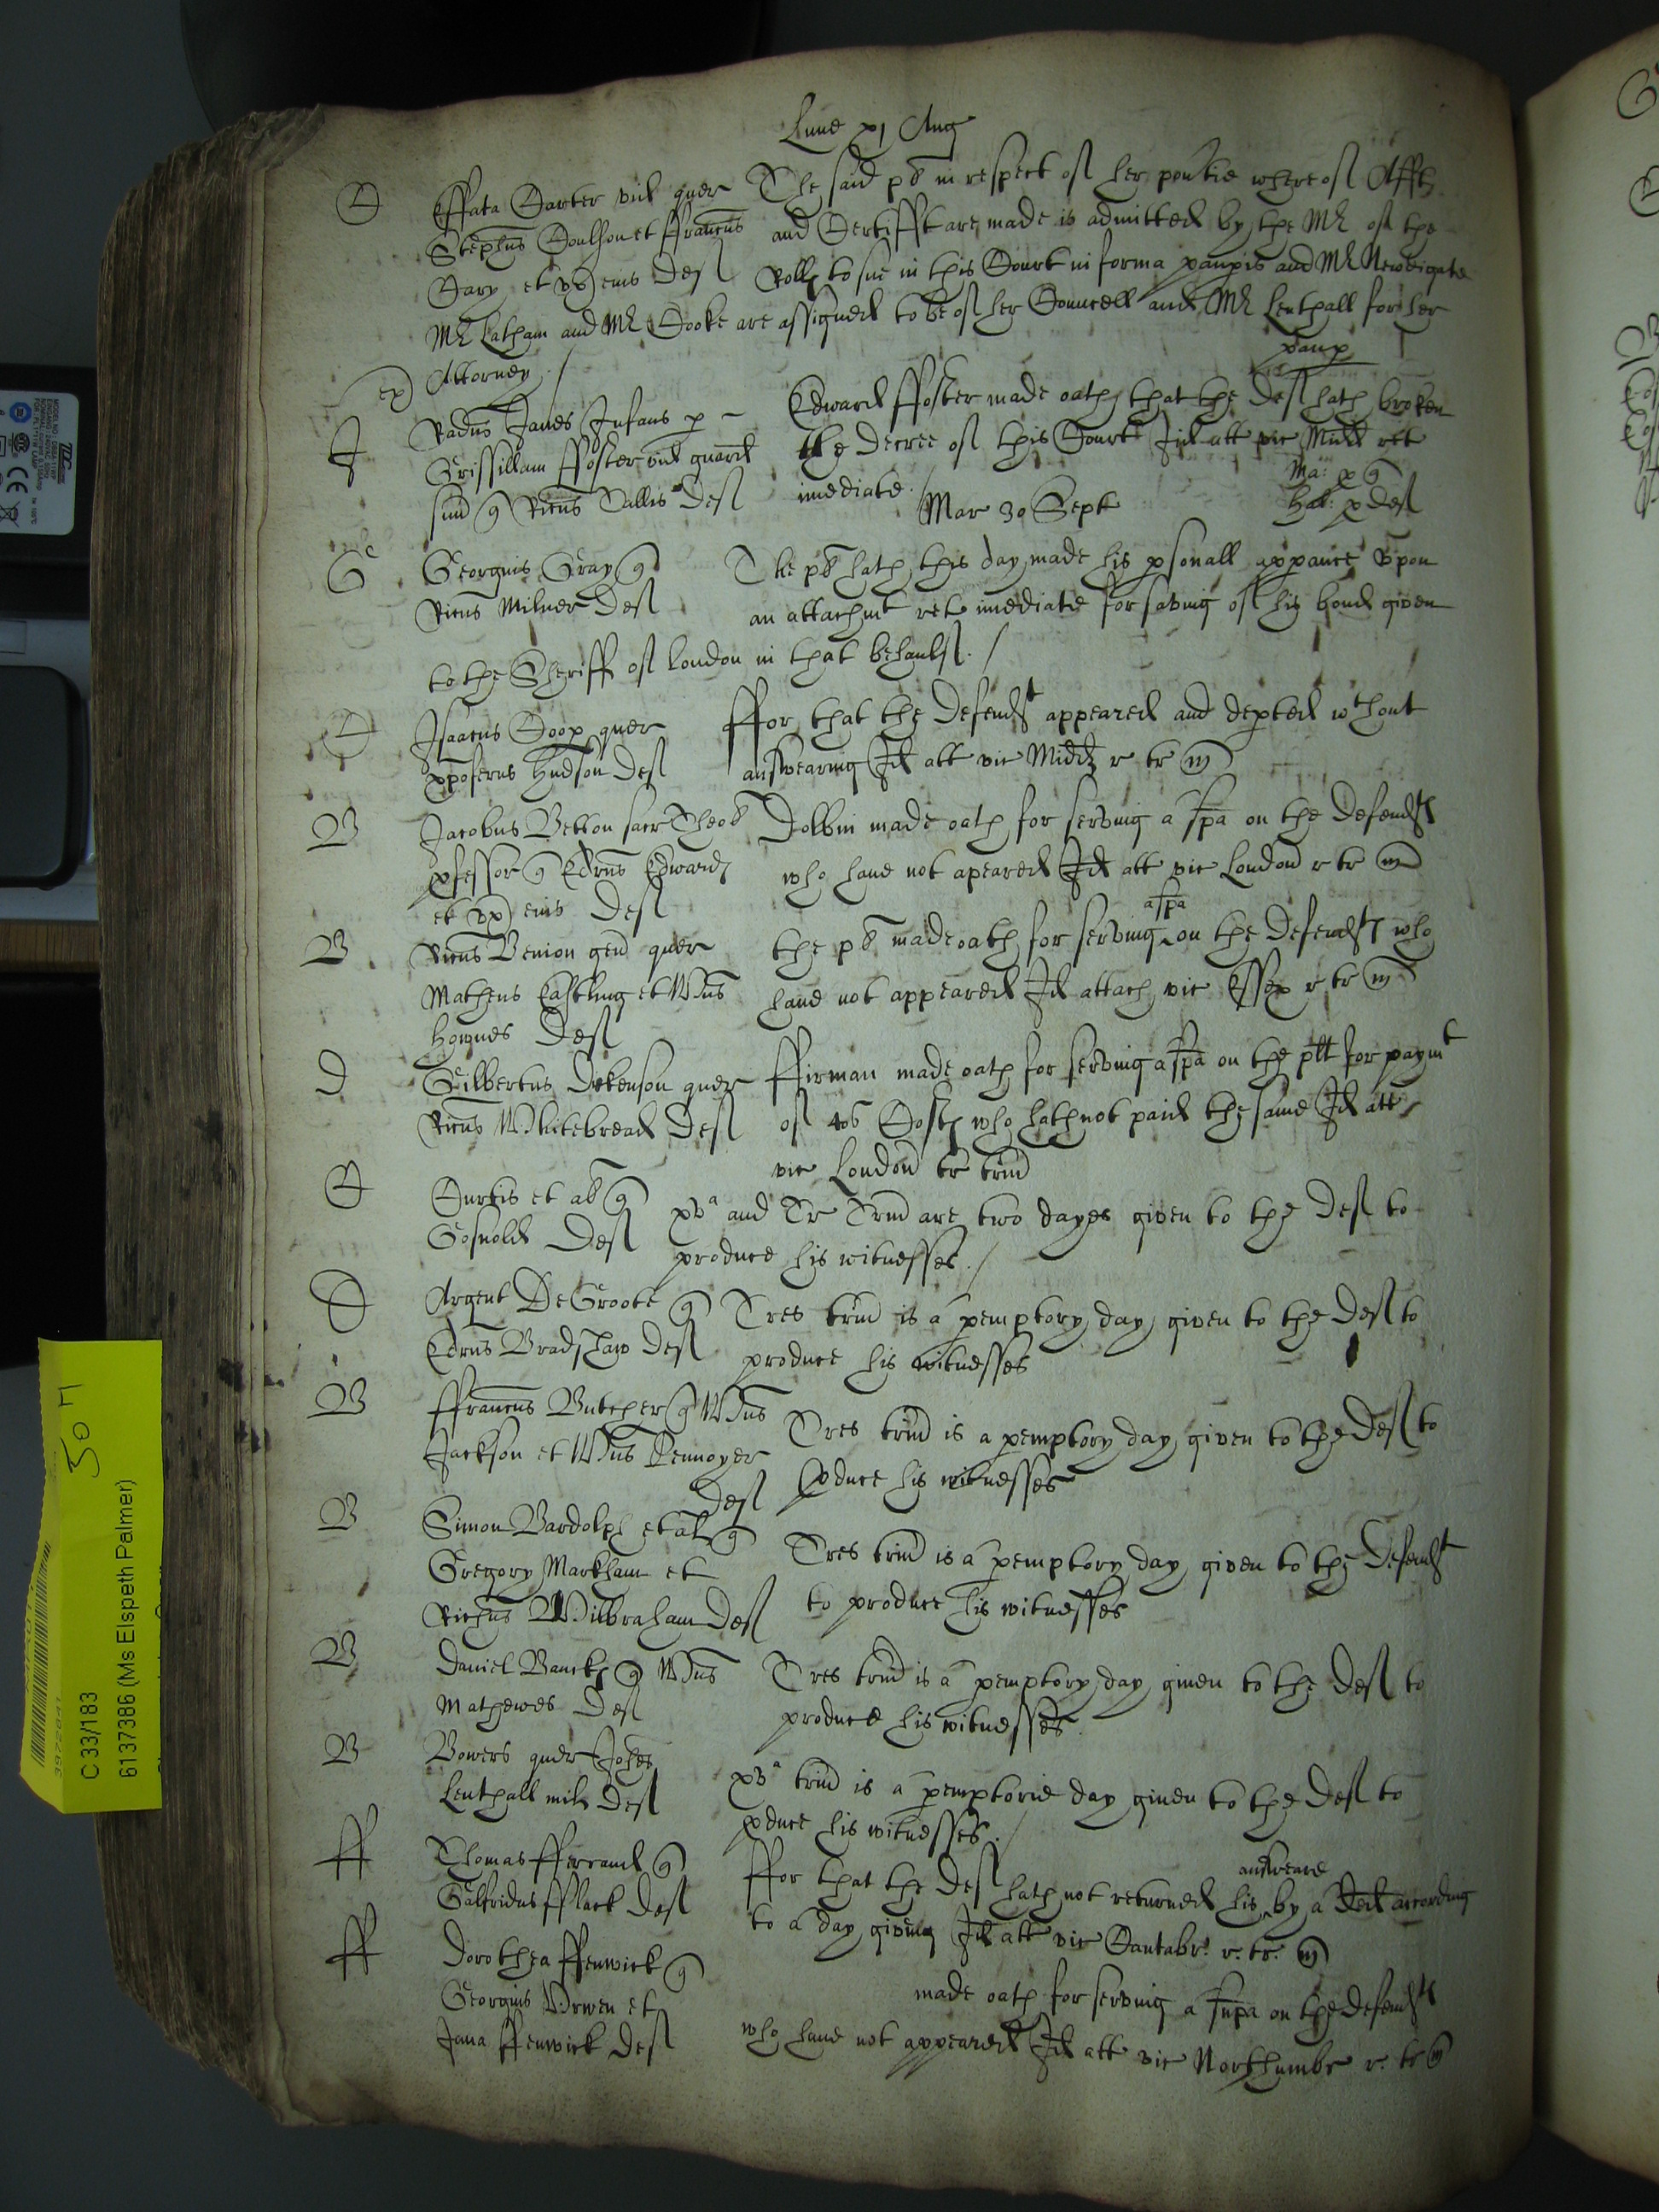 Lune xj Aug
C
Effata Carter vid quer
Stephus Coulson et ffrancus
Cary et vx eius Def
The said pl in respect of her povtie whereof Affid
and Certifficate are made is admitted by the Mr of the
Rolls to sue in this Court in forma paupis and Mr Newdigate
Mr Latham and Mr Cooke are assigned to be of her Councell and Mr Lenthall for her
Attorney /
paup
ex
J
Radus Janes Infans p
Grissillam ffoster vid guard
suu q Ricus Tallis Def
Edward ffoster made oath that the Def hath broken
the decree of this Court Id att vic Midd ret
imediate.
Ma: p q
Hall: p def
Mar 30 Sept
G
Georgius Gray q
Ricus Milner Def
The pl hath this day made his psonall appance vpon
an attachmt ret imediate for saving of his bond given
to the Sheriff of London in that behaulf. /
C
Isaacus Coop quer
xpoferus Hudson Def
ffor that the Defendt appeared and depted wthout
answearing Id att vic Midd r tr m
B
Jacobus Betton sacr Theol
pfessor q Edrus Edwards
et vx eius Def
Dobbin made oath for serving a spa on the defendts
who haue not apeared Id att vic London r tr m
B
Ricus Benion gen quer
Matheus Castling et Wms
Hownes Def
a spa
the pl made oath for serving on the Defendts who
haue not appeared Id attach vic Essex r tr m
D
Gilbertus Dickenson quer
Ricus Whitebread Def
ffirman made oath for serving a spa on the plt for paymt
of 40s Costs who hath not paid the same Id att
vic London tr trin
C
Curtis et al q
Gosnold Def
xva and Cr Trin are two dayes given to the Def to
produce his witnesses. /
D
Argent De Groote q
Edrus Bradshaw Def
Tres trin is a pemptory day given to the Def to
produce his witnesses
B
ffrancus Butcher q Wms
Jackson et Wms Pennoyer
Def
Tres trin is a pemptory day given to the Def to
pduce his witnesses
B
Simon Bardolph et al q
Gregory Markham et
Richus Wilbraham Def
Tres trin is a pemptory day given to the Defendt
to produce his witnesses
B
Daniel Banckes q Wms
Mathewes Def
Tres trin is a pemptory day given to the Def to
produce his witnesses.
B
Bowers quer Johes
Lenthall mil Def
xva trin is a pemptorie day given to the Def to
pduce his witnesses. /
ff
Thomas fferrand q
Galfridus fflack Def
answeare
ffor that the Def hath not returned his by a Ded according
to a day giving Id att vic Cantabr: r. tr. m
ff
Dorothea ffenwick q
Georgius Vrwen et
Jana ffenwick Def
made oath for serving a supa on the defendts
who haue not appeared Id att vic Northumbr r. tr m
50 7
C 33/183
6137386 (Ms Elspeth Palmer)